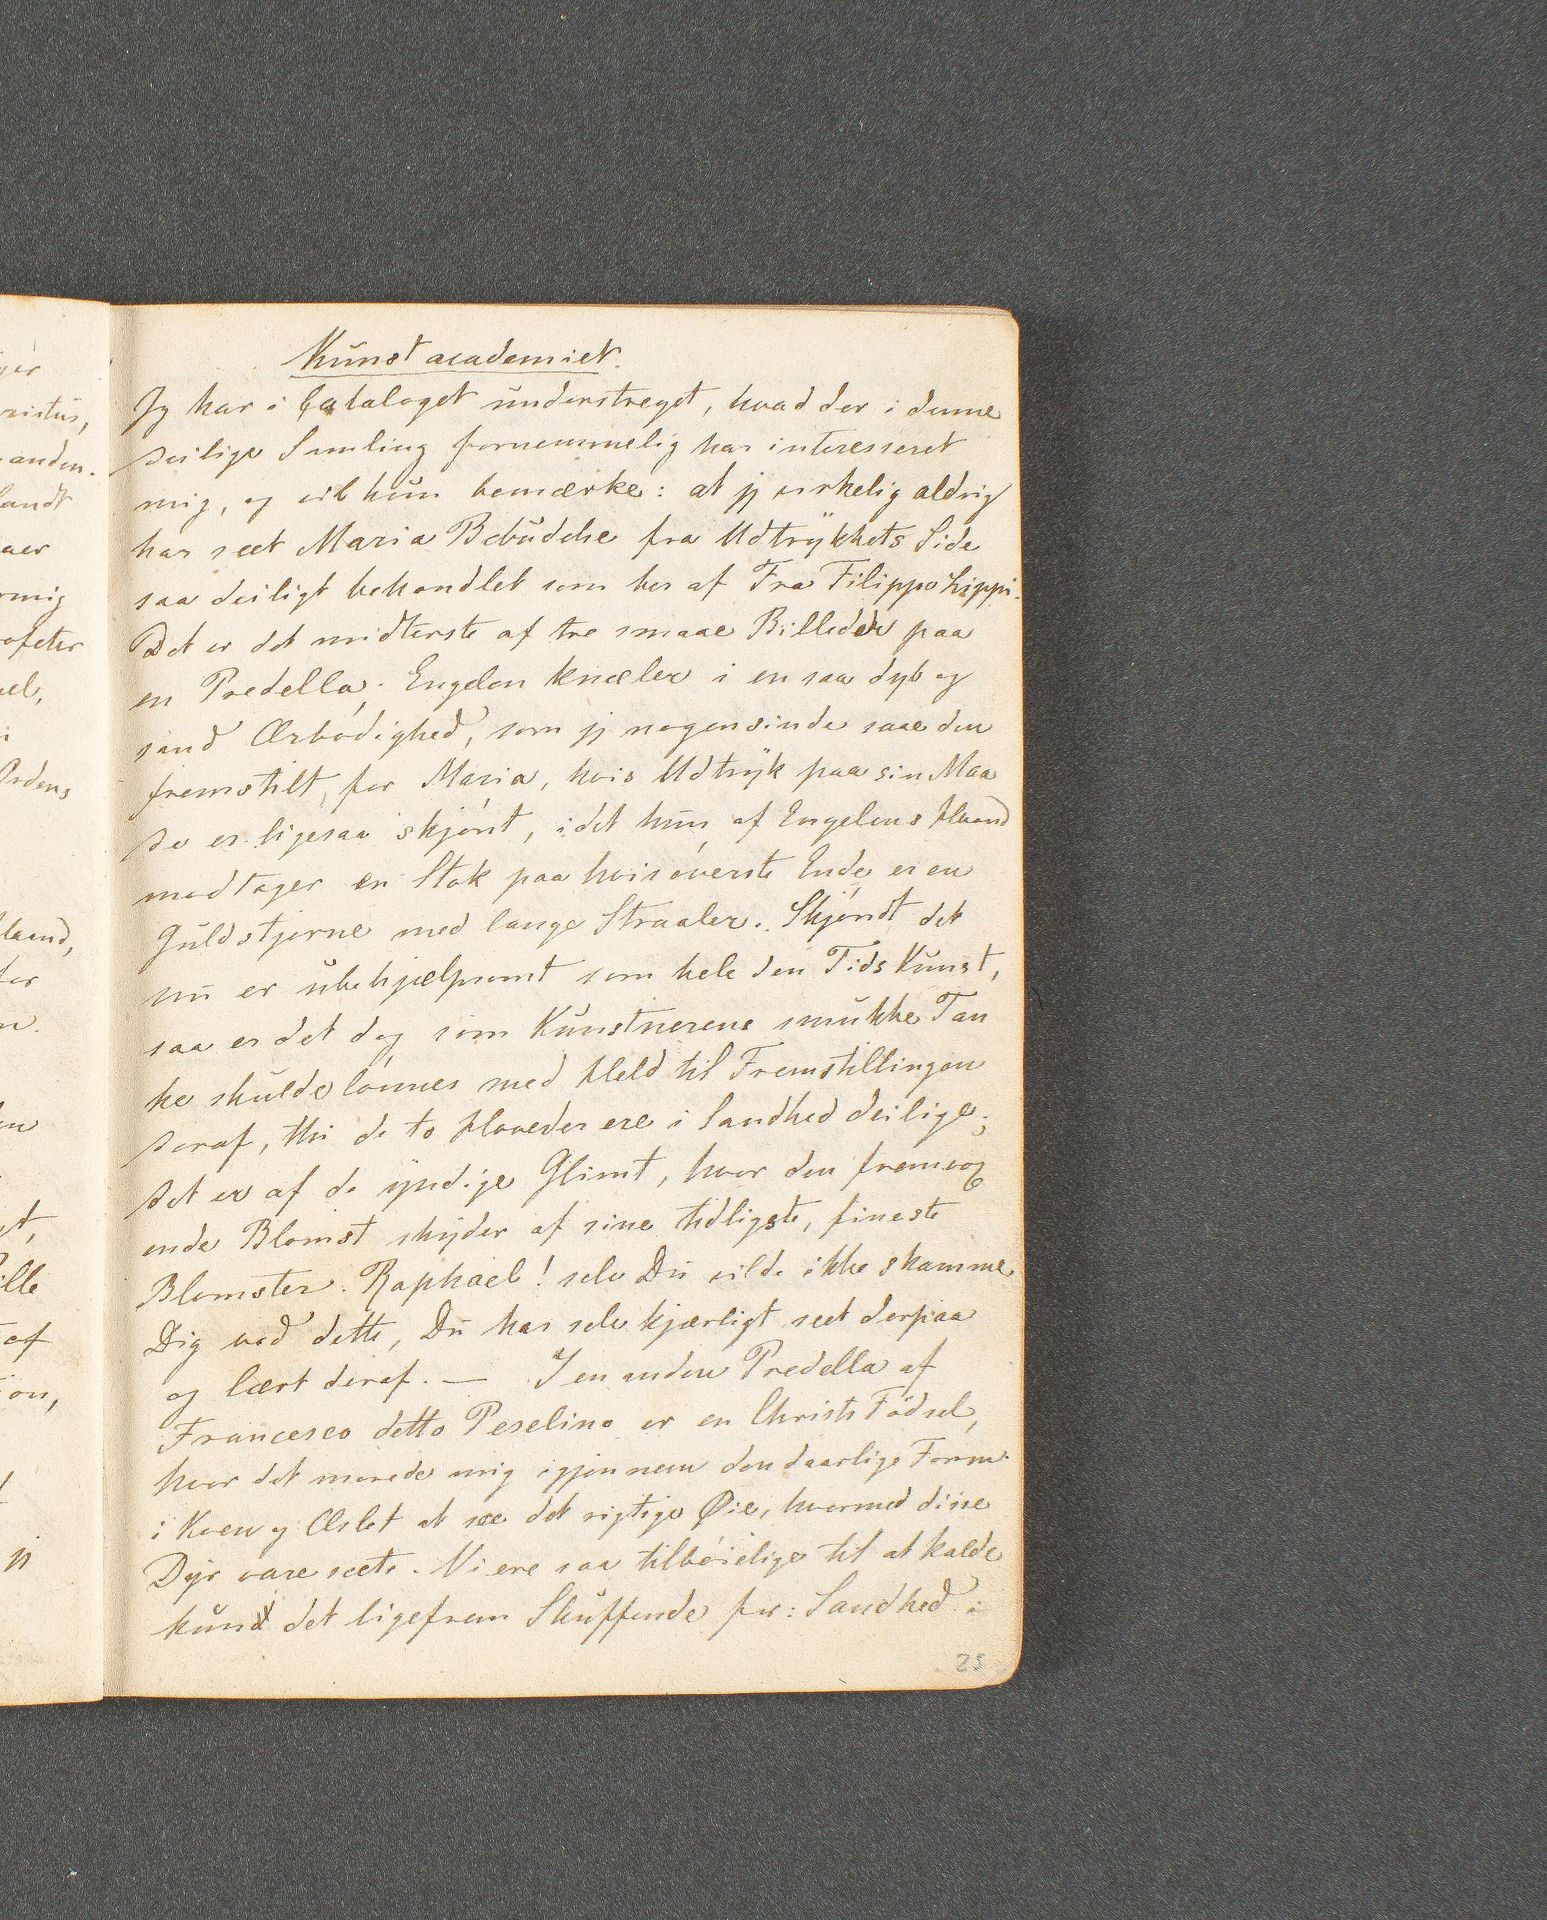 jer
ristus,
anden.
landt
aer
rmig
rofeter
el,
i
Ordens
Haand,
for
n.
en
gt,
ille
af
ion,
jj
Kunstacademiet.
Jg har i Cataloget understreget, hvad der i denne
deilige Samling fornemmelig har interesseret
mig, og vil kun bemærke: at jj virkelig aldrig
har seet Maria Bebudelse fra Udtrykkets Side
saa deiligt behandlet som her af Fra Filippo Lippi.
Det er det midterste af tre smaae Billeder paa
en Predella; Engelen knæler i en saa dyb og
sand Ærbødighed, som jj nogensinde saae den
fremstilt, for Maria, hvis Udtryk paa sin Maa
de er ligesaa skjønt, idet hun af Engelens Haand
modtager en Stok paa hvis øverste Ende er en
Guldstjerne med lange Straaler. Skjøndt det
nu er ubehjælpsomt som hele den Tids Kunst,
saa er det dog som Kunstnerens smukke Tan
ke skulde lønnes med Held til Fremstillingen
deraf, thi de to Hoveder ere i Sandhed deilige;
det er af de yndige Glimt, hvor den fremvox
ende Blomst skyder af sine tidligste, fineste
Blomster. Raphael! selv Du vilde ikke skamme
Dig ved dette, Du har selv kjærligt seet derpaa
og lært deraf. — I en anden Predella af
Francesco detto Peselino er en Christi Födsel,
hvor det morede mig igjennem den daarlige Form
i Koen og Æslet at see det rigtige Øie, hvormed disse
Dyr vare seete. Vi ere saa tilbøielige til at kalde
kun det ligefrem Skuffende for: Sandhed i
25